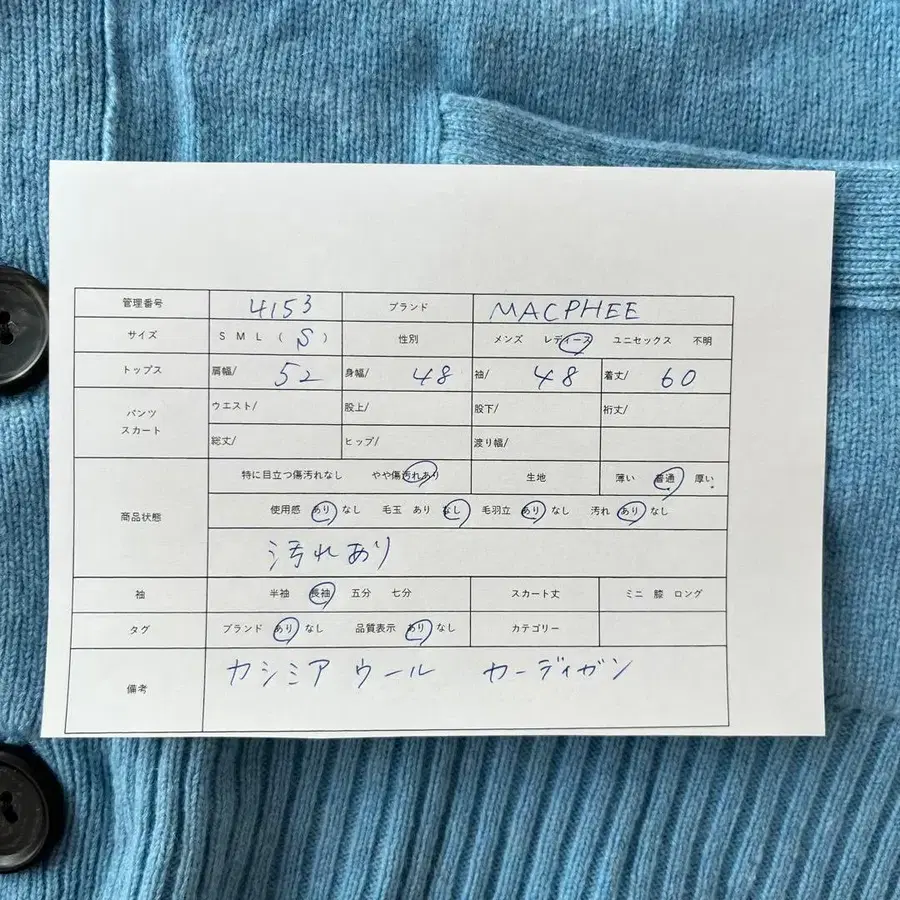 管理番号 4153 ブランド MACPHEE
サイズ S M L ( S ) 性別 メンズ レディース ユニセックス 不明
トップス 肩幅/ 52 身幅/ 48 袖/ 48 着丈/ 60
パンツ スカート ウエスト/ 股上/ 股下/ 裄丈/
総丈/ ヒップ/ 渡り幅/
商品状態 特に目立つ傷汚れなし やや傷汚れあり 生地 薄い 普通 厚い
使用感 あり なし 毛玉 あり なし 毛羽立 あり なし 汚れ あり なし
汚れあり
袖 半袖 長袖 五分 七分 スカート丈 ミニ 膝 ロング
タグ ブランド あり なし 品質表示 あり なし カテゴリー
備考 カシミア ウール カーディガン